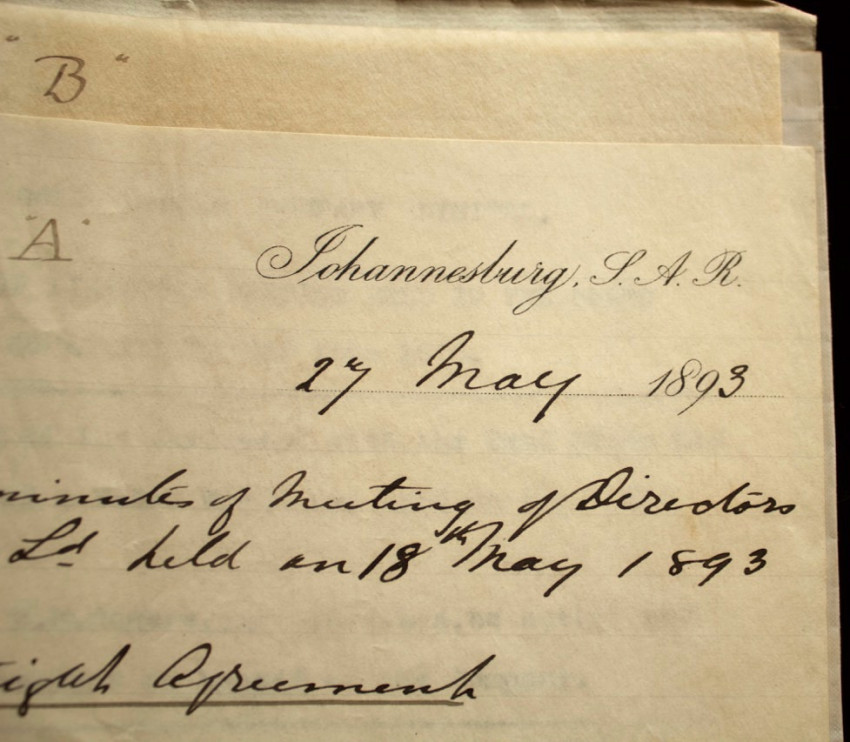 "B"
"A"
Johannesburg, S. A. R.
27 May 1893
minutes of Meeting of Directors
Ld held on 18th May 1893
Agreement